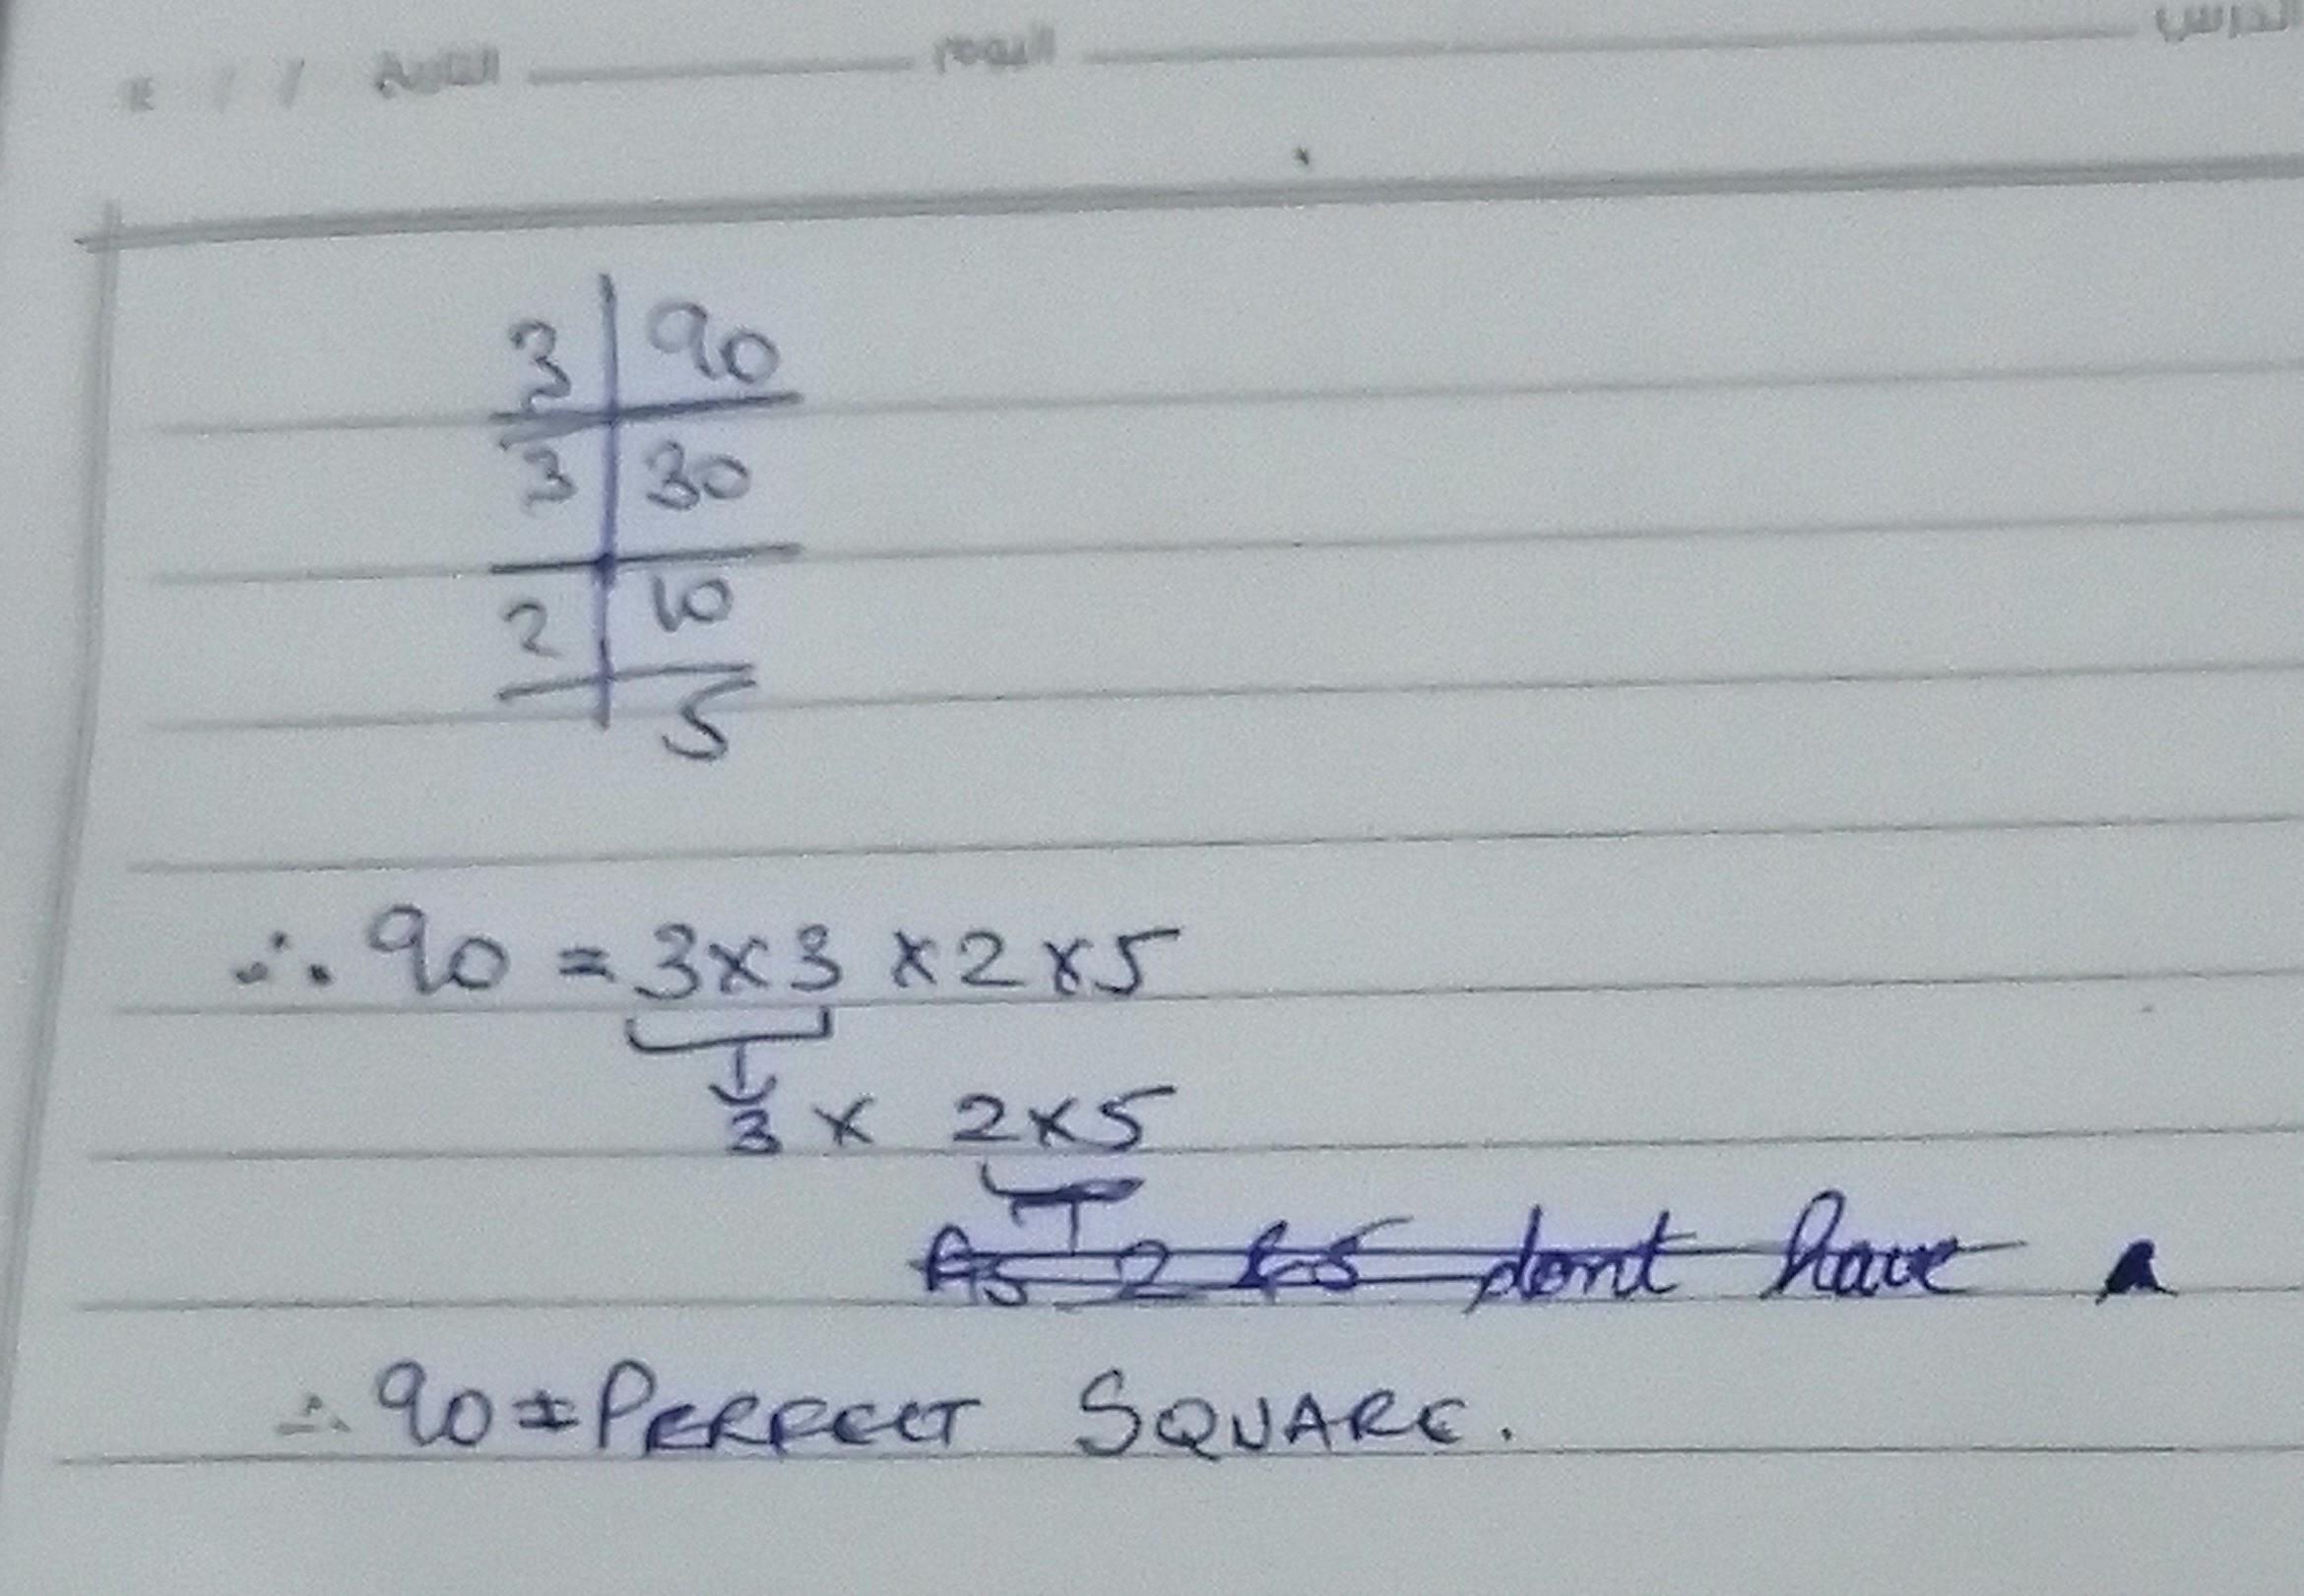 الدرس اليوم التاريخ / /
3 | 90
3 | 30
2 | 10
5
∴ 90 = 3×3 ×2×5
3 × 2×5
As 2 & 5 dont have
∴ 90 ≠ PERFECT SQUARE.